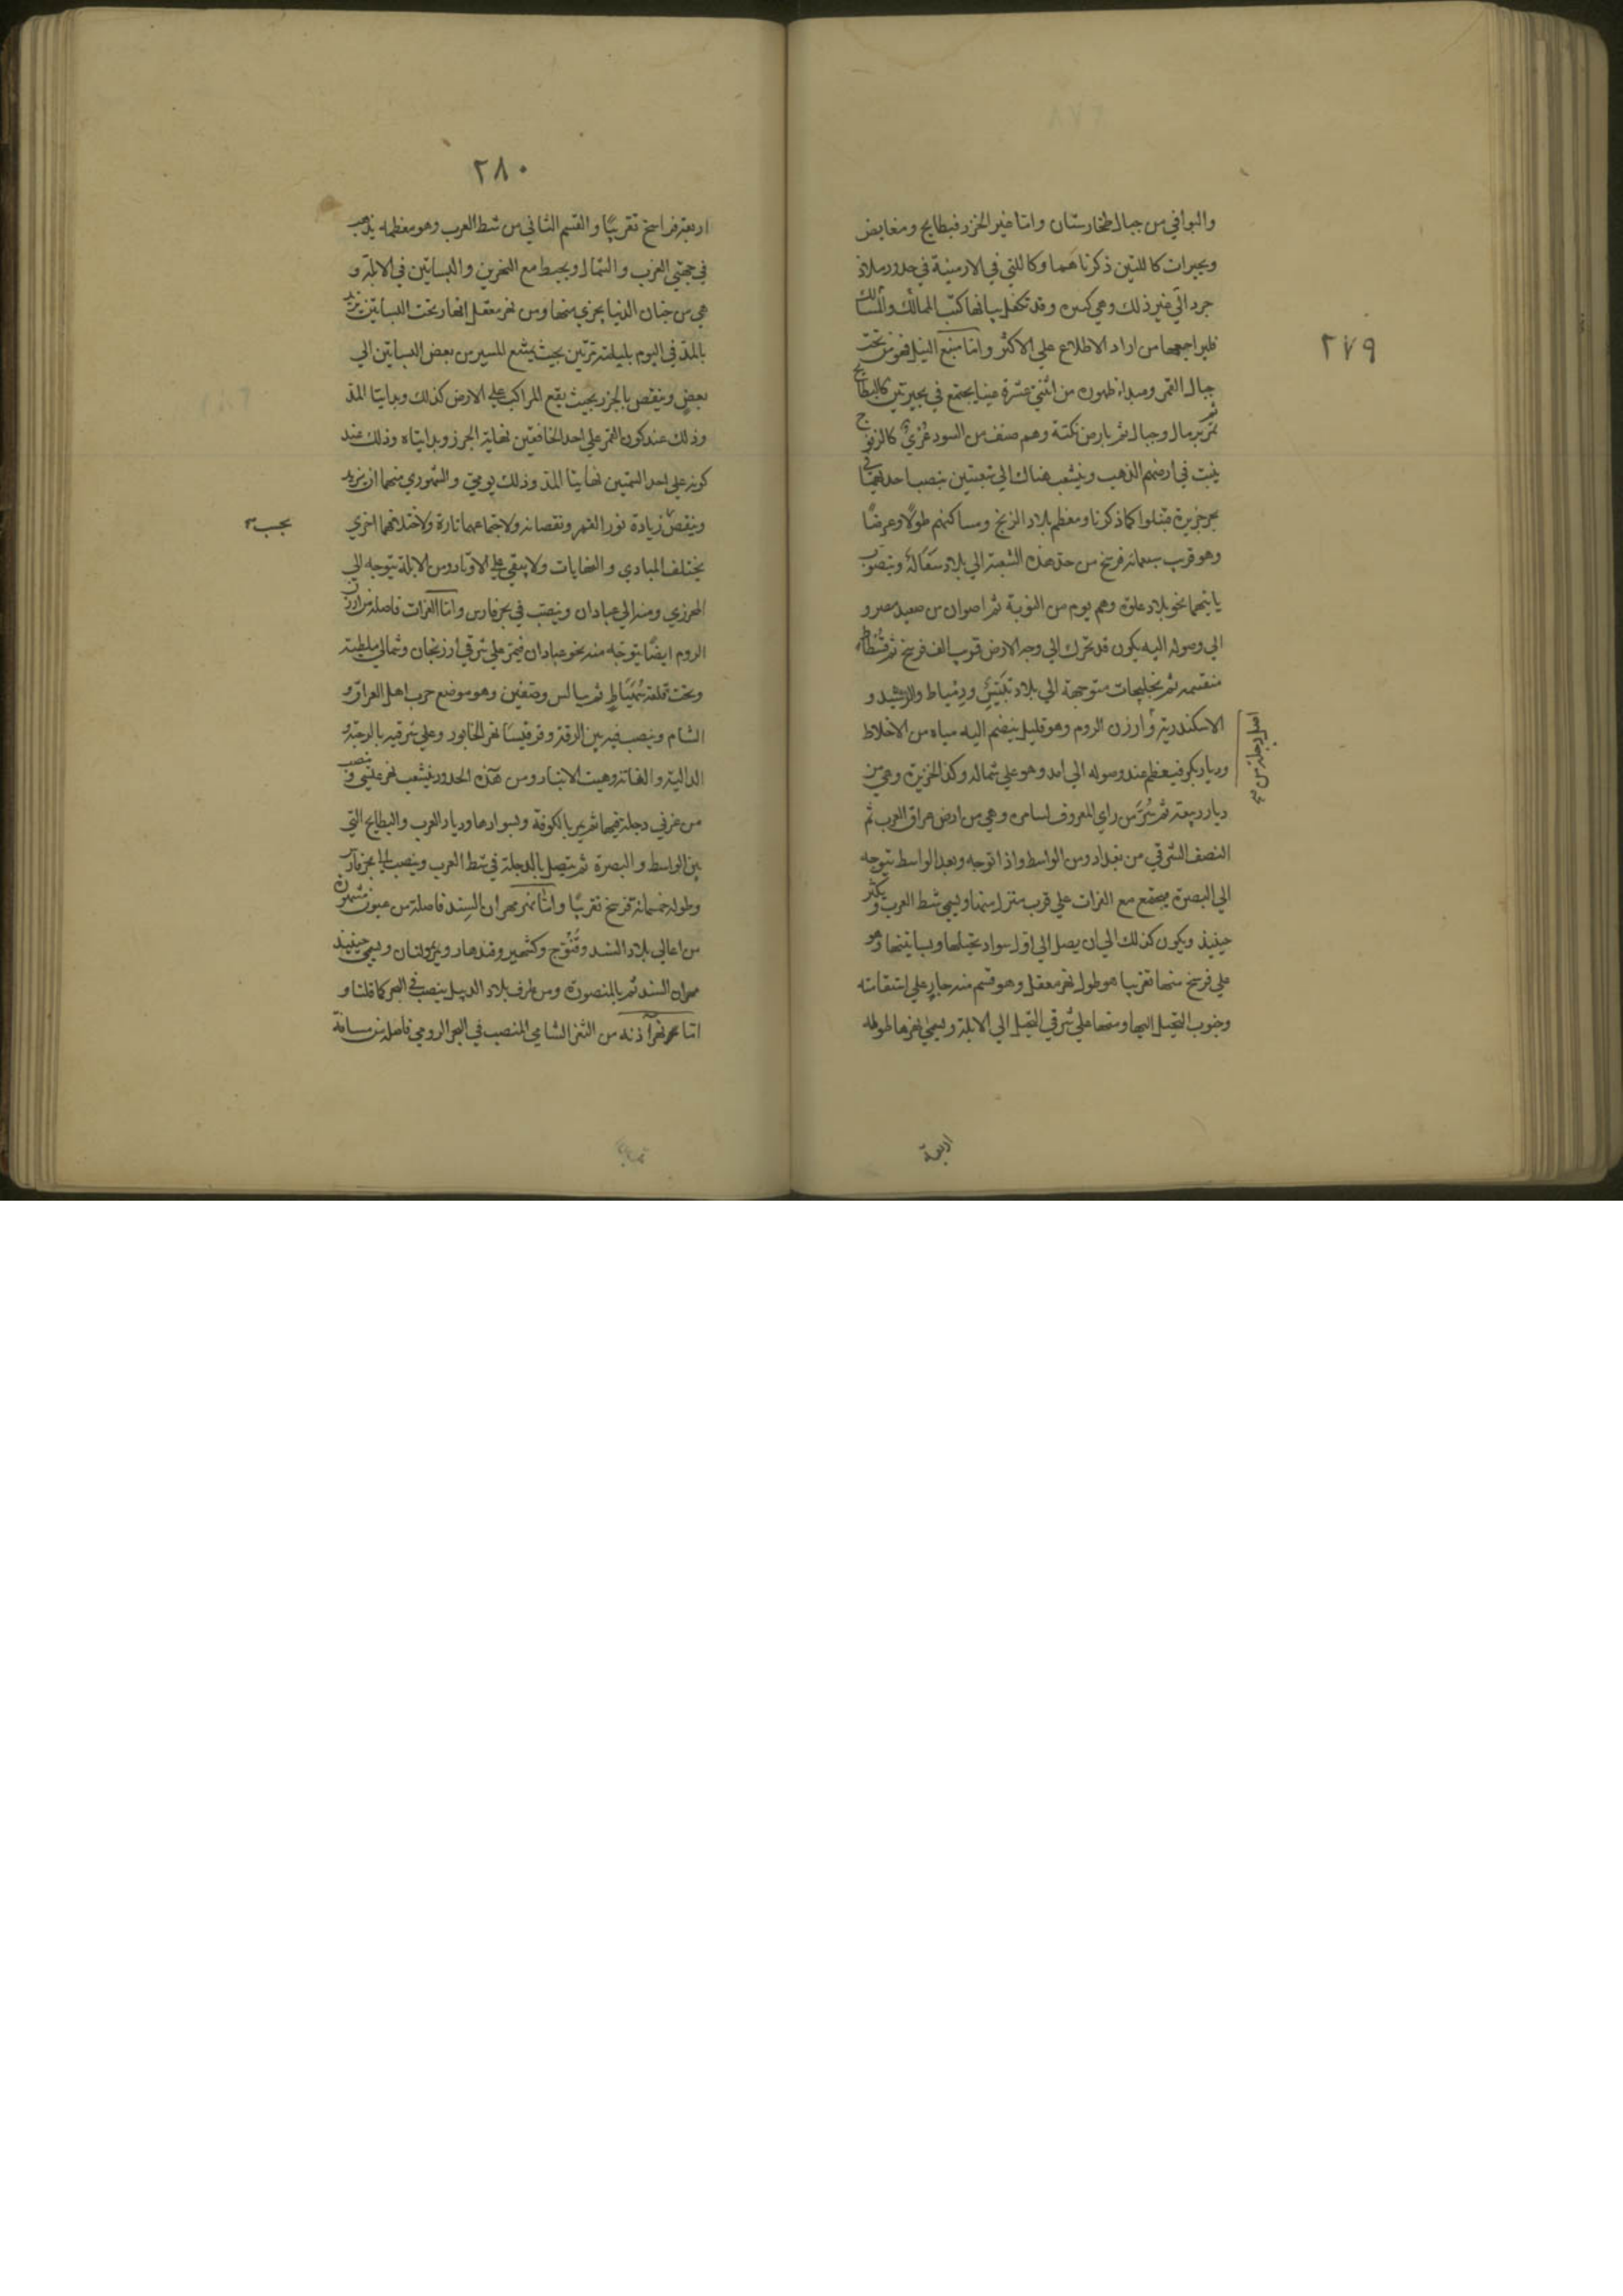 ٢٧٩
والبواقي من جبال طخارستان واما غير الخزر فبطايح ومغايض
وبحيرات كاللتين ذكرناهما وكاللتي في الارمينية في حدود ملاذ
جرد الي غير ذلك وهي كثيره وقد تكفل ببيانها كتب الممالك والمسالك
فليراجعها من اراد الاطلاع علي الاكثر واما منبع النيل فهو من تحت
جبال القمر ومبداء ظهوره من اثنتي عشرة عينا يجتمع في بحيرتين كالبطايح
ثم تمر برمال وجبال ثم بارض نكتة وهم صنف من السود عُزيٌ كالزنج
ينبت في ارضهم الذهب وينشعب هناك الي شعبتين ينصب احديهما في
بحر جزيرة قنبلوا كما ذكرنا ومعظم بلاد الزنج ومساكنهم طولًا وعرضًا
وهو قريب سبعمائة فرسخ من حد هذه الشعبة الي بلاد سفالة وينصوب
يا بينهما نحو بلاد علوه وهم يوم من النوبة ثم اصوان من صعيد مصر و
الي وصوله اليه يكون قد تحرك الي وجه الارض قريب الف فرسخ ثم فسطاط
منقسمه ثم بخليجات متوجهة الي بلاد تنيس ودمياط والرشيد و
الاسكندرية وارزن الروم وهو قليل ينضم اليه مياه من الاخلاط
اصل دجلة من
وديار بكر فيعظم عند وصوله الي امد وهو علي شماله وكذا الجزيرة وهي من
ديار ربيعة ثم سُرَّ من راي المعروف بسامره وهي من ارض عراق العرب ثم
النصف الشرقي من بغداد ومن الواسط واذا توجه وبعد الواسط يتوجه
الي البصرة يجتمع مع الفرات علي قرب منزل منها ويسمي شط العرب ويكثر
حينيذ ويكون كذلك الي ان يصل الي اول سواد نخيلها وبساتينها وهو
علي فرسخ منها تقريبا هو طول نهر معقل وهو قسم منه جار علي استقامته
وجنوب النخيل اليها ومنها علي شرقي النخيل الي الابلة ويسمي نهرها طوله
اربعة
٢٨٠
اربعة فراسخ تقريبًا والقسم الثاني من شط العرب وهو معظمه يذهب
في جهتي الغرب والشمال ويحيط مع النهرين والبساتين في الابلة و
هي من جنان الدنيا يجري منها ومن نهر معقل انهار تحت البساتين يزيد
بالمد في اليوم بليلته مرتين بحيث يمتنع المسير من بعض البساتين الي
بعض وينقص بالجزر بحيث يقع المراكب علي الارض كذلك وبدايتا المد
وذلك عند كون القمر علي احد الخافقين نهايتا الجزر وبدايتاه وذلك عند
كونه علي احد السمتين نهايتا المد وذلك يومي والشهوري منهما ان يزيد
وينقص زيادة نور القمر ونقصانه ولاجتماعهما تارة ولاختلافهما اخري
بحسب
يختلف المبادي والنهايات ولا يبقي علي الاوتاد ومن الابلة يتوجه الي
المحرزي ومنه الي عبادان وينصب في بحر فارس واما الفرات فاصله من ارزن
الروم ايضًا يتوجه منه نحو عبادان فيمر علي شرقي ارزنجان وشمالي ملطية
وتحت قلعة سُمَيْسَاط ثم ببالس وصفين وهو موضع حرب اهل العراق و
الشام وينصب فيه بين الرقة وقرقيسا نهر الخابور وعلي شرقيه بالرحبة و
الدالية والغانة وهيت الانبار ومن هذه الحدود ينشعب نهر عيسي وينصب
من غربي دجلة فيها ثم يمر بالكوفة وبسوادها وديار العرب والبطايح التي
بين الواسط والبصرة ثم يتصل بالدجلة في شط العرب وينصب الي بحر فارس
وطوله خمسمائة فرسخ تقريبًا واما نهر مهران السند فاصله من عيون مشهورة
من اعالي بلاد السند وقنوج وكشمير وقندهار ويمر بمولتان ويسمي حينيذ
مهران السند ثم بالمنصورة ومن طرف بلاد الديبل ينصب في البحر كما قلنا و
اما نهر آذنه من الثغر الشامي المنصب في البحر الرومي فاصله من مسافة